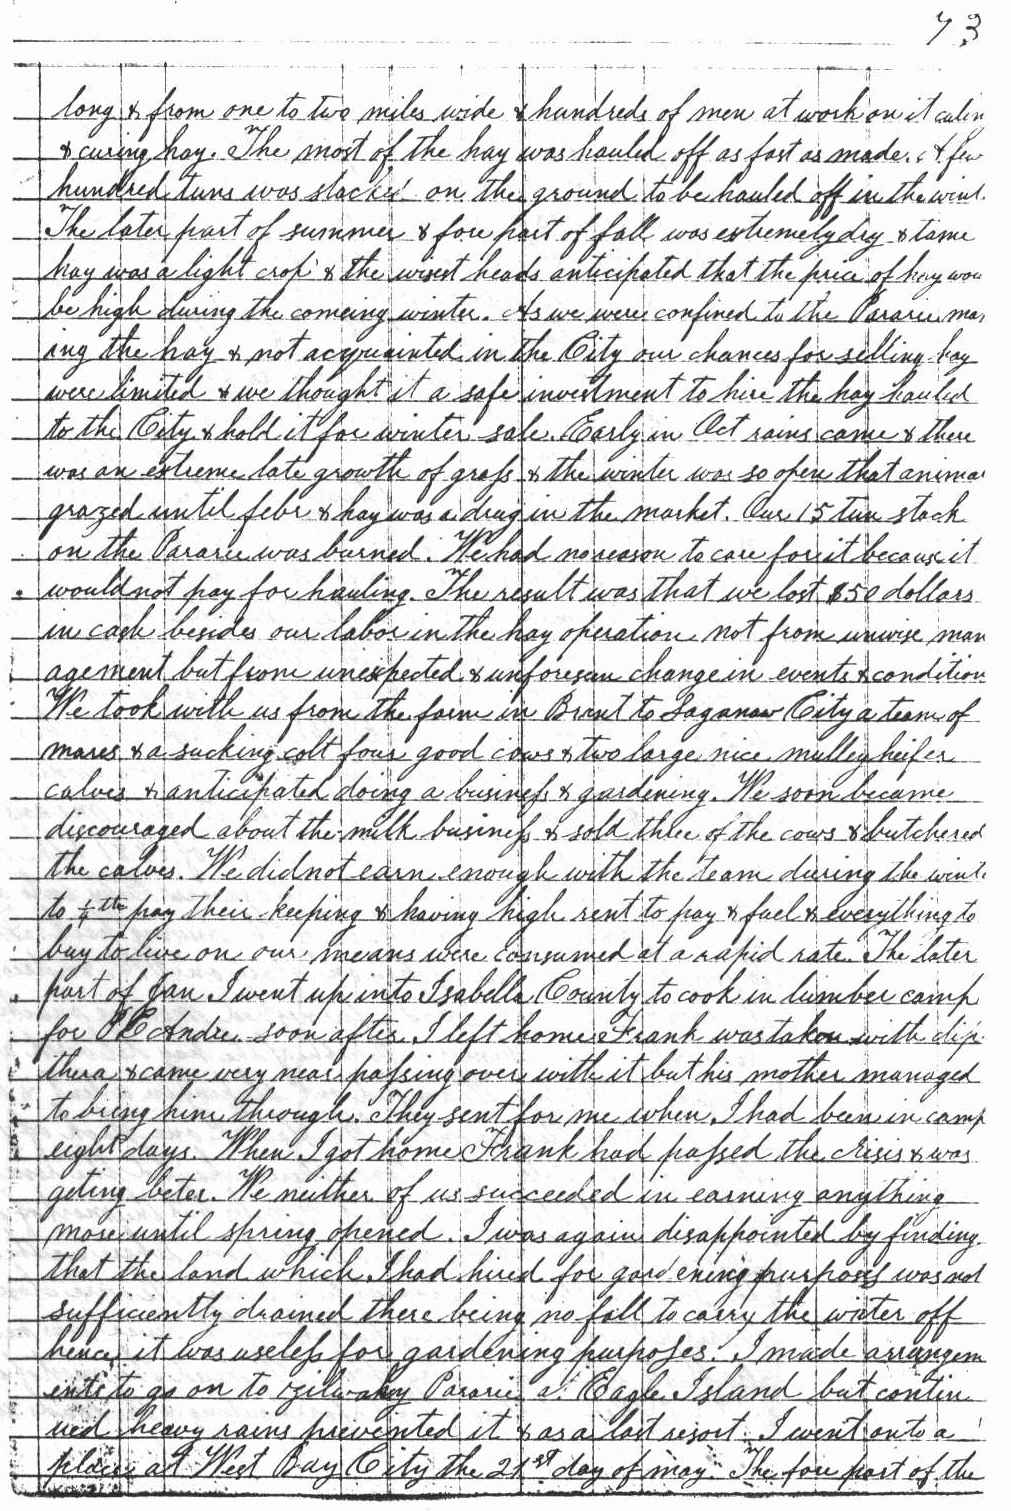 73
long & from one to two miles wide & hundreds of men at work on it cutin
& curing hay. The most of the hay was hauled off as fast as made. & few
hundred tuns was stacked on the ground to be hauled off in the wint
The later part of summer & fore part of fall was extremely dry & tame
hay was a light crop & the wisest heads anticipated that the price of hay wou
be high during the comeing winter. As we were confined to the Pararie mak
ing the hay & not acquainted in the City our chances for selling hay
were limited & we thought it a safe investment to hire the hay hauled
to the City & hold it for winter sale. Early in Oct rains came & there
was an extreme late growth of grass & the winter was so open that animal
grazed until febr & hay was a drug in the market. Our 15 tun stack
on the Pararie was burned. We had no reason to care for it because it
would not pay for hauling. The result was that we lost $50 dollars
in cash besides our labor in the hay operation not from unwise man
agement but from unexpected & unforeseen change in events & condition
We took with us from the farm in Brant to Saganaw City a team of
mares & a sucking colt four good cows & two large nice mulley heifer
calves & anticipated doing a business & gardening. We soon became
discouraged about the milk business & sold three of the cows & butchered
the calves. We did not earn enough with the team during the wint
to ¼th pay their keeping & having high rent to pay & fuel & everything to
buy to live on our means were consumed at a rapid rate. The later
part of Jan I went up into Isabella County to cook in lumber camp
for Andre soon after I left home Frank was taken with dip
thera & came very near passing over with it but his mother managed
to bring him through. They sent for me when I had been in camp
eight days. When I got home Frank had passed the crisis & was
geting beter. We neither of us succeeded in earning anything
more until spring opened. I was again disappointed by finding
that the land which I had hired for gardening purposes was not
sufficiently drained there being no fall to carry the water off
hence it was useless for gardening purposes. I made arrangem
ents to go on to Pararie at Eagle Island but contin
ued heavy rains prevented it & as a last resort I went onto a
place at West Bay City the 21st day of may. The fore part of the